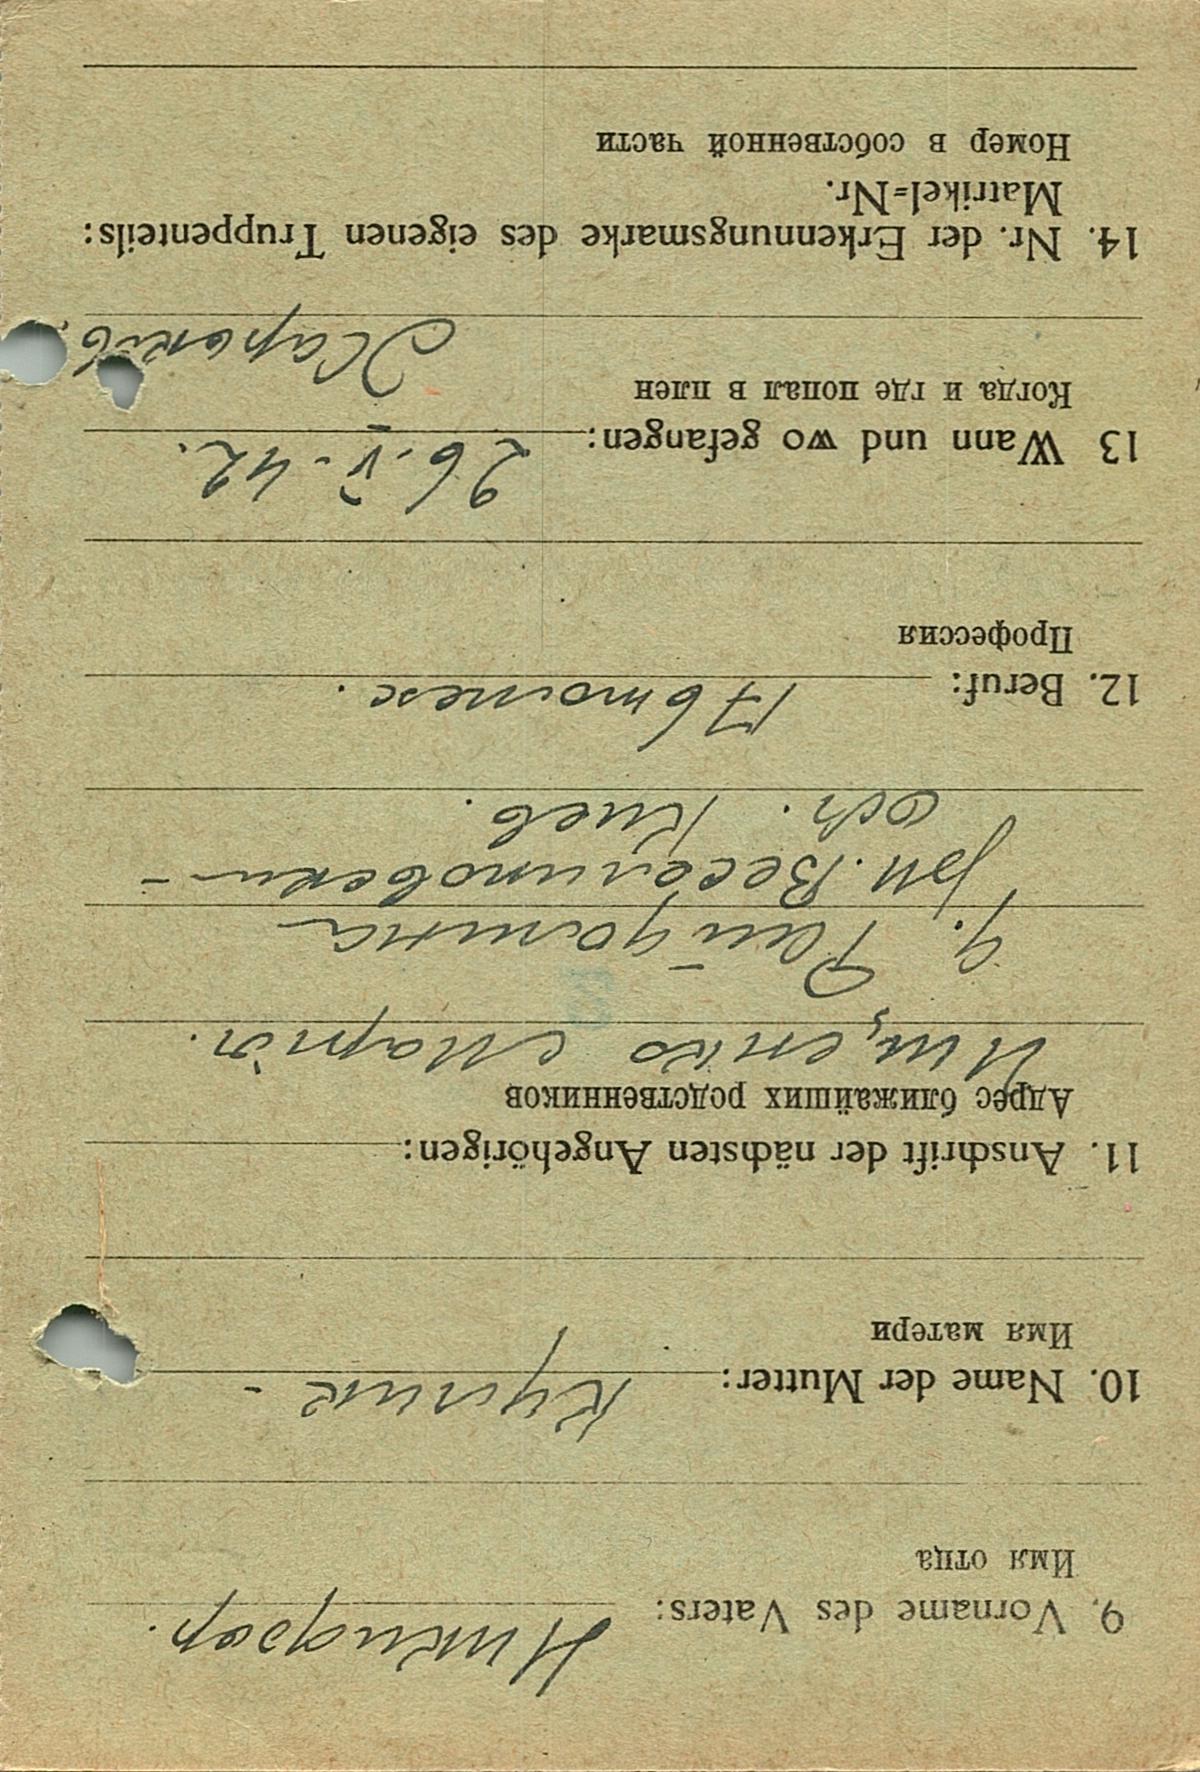 9. Vorname des Vaters: Никифор.
Имя отца
10. Name der Mutter: Кулик -
Имя матери
11. Anschrift der nächsten Angehörigen:
Адрес ближайших родственников
Ищенко Марія.
с.
рн. Веселиновски -
Киев.
12. Beruf:
Профессия
13 Wann und wo gefangen: 26. V - 42.
Когда и где попал в плен
Харьків.
14. Nr. der Erkennungsmarke des eigenen Truppenteils:
Matrikel=Nr.
Номер в собственной части